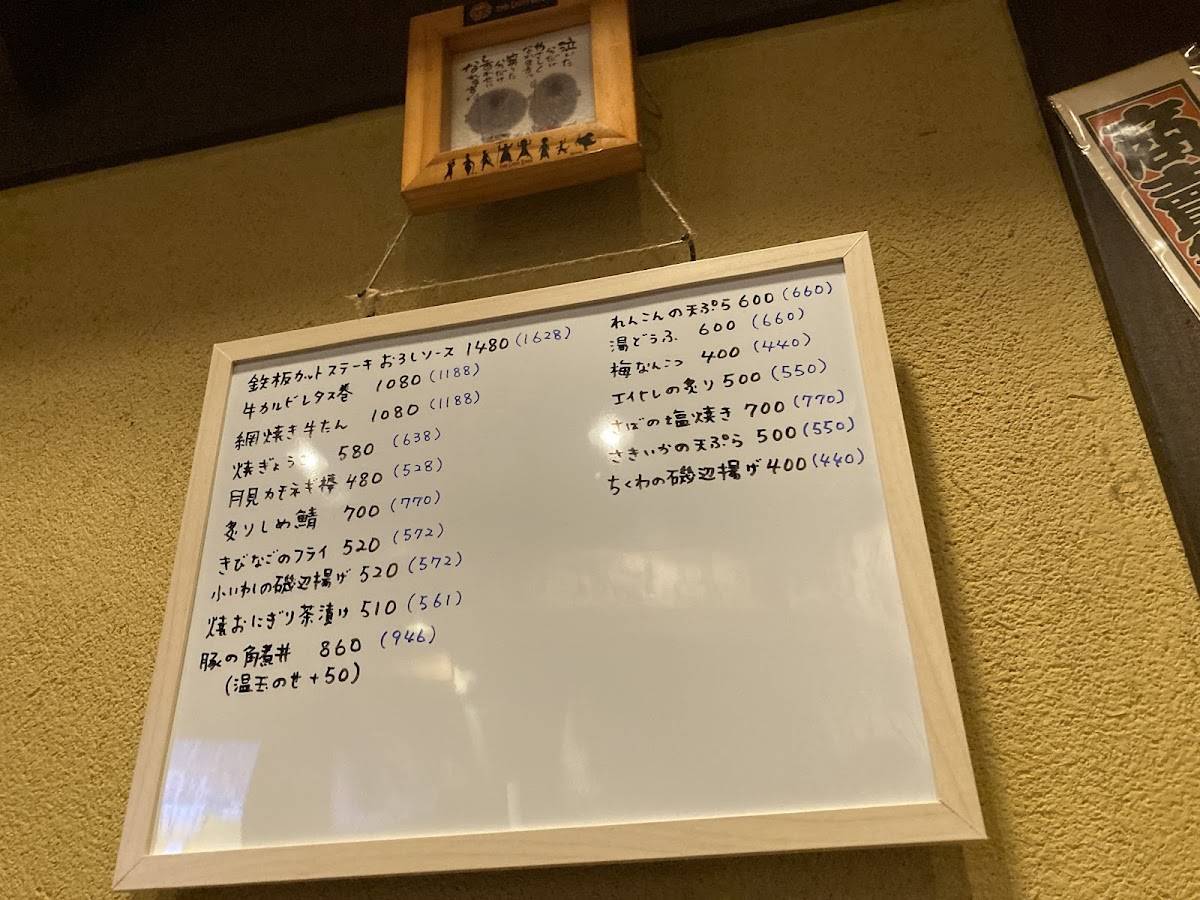 泣いた
分だけ
やさしく
なれます。
笑った
分だけ
しあわせに
なれます。
鉄板カットステーキ おろしソース 1480 (1628)
牛カルビレタス巻 1080 (1188)
網焼き牛たん 1080 (1188)
焼ぎょうざ 580 (638)
月見カモネギ棒 480 (528)
炙りしめ鯖 700 (770)
きびなごのフライ 520 (572)
小いわしの磯辺揚げ 520 (572)
焼おにぎり茶漬け 510 (561)
豚の角煮丼 860 (946)
(温玉のせ +50)
れんこんの天ぷら 600 (660)
湯どうふ 600 (660)
梅なんこつ 400 (440)
エイヒレの炙り 500 (550)
さばの塩焼き 700 (770)
さきいかの天ぷら 500 (550)
ちくわの磯辺揚げ 400 (440)